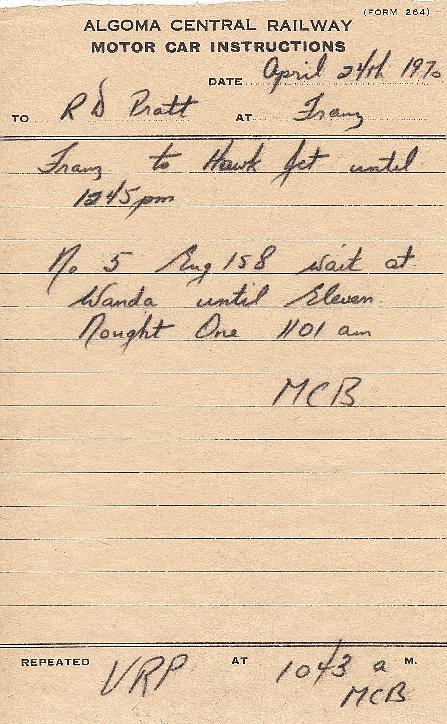 (FORM 264)
ALGOMA CENTRAL RAILWAY
MOTOR CAR INSTRUCTIONS
DATE April 24th 1970
TO R D Pratt AT Franz
Franz to Hawk Jct until
1245 pm
No 5 Eng 158 wait at
Wanda until Eleven
Nought One 1101 am
MCB
REPEATED VRP AT 1043 a M.
MCB